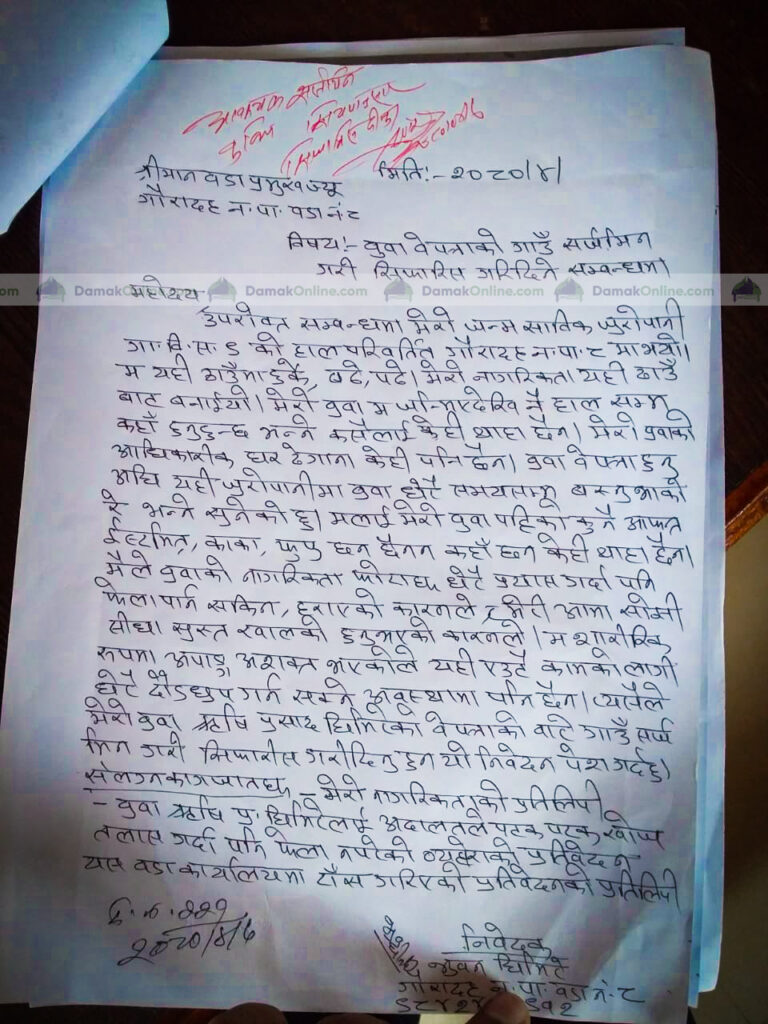 आवश्यक सर्जमिन
मिति:- २०८०/४/
श्रीमान वडा प्रमुखज्यू
गौरादह न.पा. वडा नं ८
विषय:- बुवा वेपत्ताको गाउँ सर्जमिन
गरी सिफारिस गरिदिने सम्बन्धमा
DamakOnline.com DamakOnline.com DamakOnline.com
महोदय
उपरोक्त सम्बन्धमा मेरो जन्म साविक जुरोपानी
गा.वि.स. ६ को हाल परिवर्तित गौरादह न.पा. ८ मा भयो।
म यही ठाउँमा हुर्के, बढे, पढे। मेरो नागरिकता यही ठाउँ
बाट बनाईयो। मेरो बुवा म जन्मिएदेखि नै हाल सम्म
कहाँ हुनुहुन्छ भन्ने कसैलाई केही थाहा छैन। मेरो बुवाको
आधिकारीक घर ठेगाना केही पनि छैन। बुवा वेपत्ता हुनु
अघि यही जुरोपानीमा बुवा धेरै समयसम्म बस्नु भाको
रे भन्ने सुनेको हु। मलाई मेरो बुवा पट्टिको कुनै आफन्त
ईष्टमित्र, काका, फुपु छन छैनन कहाँ छन केही थाहा छैन।
मैले बुवाको नागरिकता धेरै प्रयास गर्दा पनि
फेला पार्न सकिन, हराएको कारणले र मेरी आमा सोझी
सीधा सुस्त खालको हुनुभएको कारणले। म शारीरिक
रूपमा अपाङ्ग अशक्त भएकोले यही एउटै कामको लागी
धेरै दौडधुप गर्न सक्ने अवस्थामा पनि छैन। त्यसैले
मेरो बुवा ऋषि प्रसाद घिमिरेको वेपत्ताको बारे गाउँ सर्ज
मिन गरी सिफारीस गरीदिनु हुन यो निवेदन पेश गर्दछु।
संलग्न कागजातहरु - मेरो नागरिकताको प्रतिलिपी
- बुवा ऋषि प्र. घिमिरेलाई अदालतले पटक पटक खोज
तलास गर्दा पनि फेला नपरेको व्यहोराको प्रतिवेदन
यस वडा कार्यालयमा टाँस गरिएको प्रतिवेदनको प्रतिलिपी
द.नं. २२१
२०८०/४/६
निवेदक
भुवन घिमिरे
गौरादह न.पा. वडा नं. ८